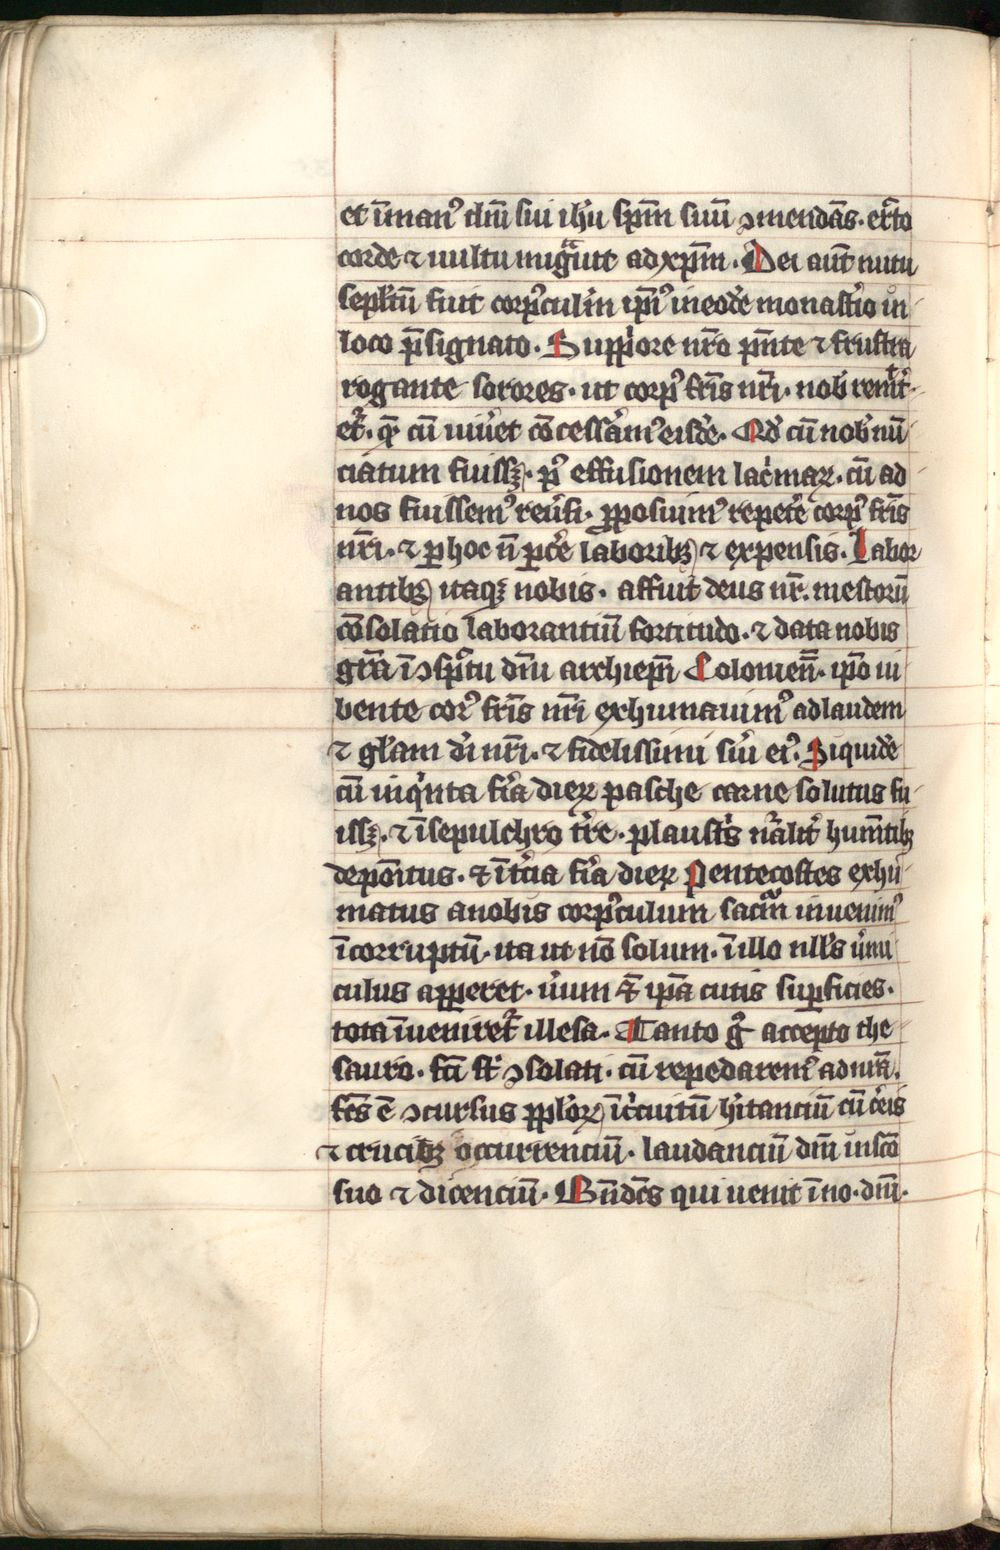 et īmanꝰ dn̄i sui ihu̾ spm̄ suū ꝯmendās. er̄to
corde ⁊ uultu migᵃuit ad xpm̄. Dei aut̄ nutu
sepl̾tū fuit corpꝰculū ipīꝰ in eodē monastio̾ in
loco p̄signato. Suppͥore nr̄o pn̄te ⁊ frustra
rogante sorores. ut corpꝰ fr̄is nr̄i. nob̾ remitt̾.
et̾. qꝫ cū uiu̾et cōcessam̾ꝰ eisdē. Qd̾ cū nob̾ nū
ciatum fuissꝫ. pꝰ effusionem lac̾maꝝ. cū ad
nos fuissemꝰ reu̾si. ꝓposuimꝰ repete̾ corpꝰ fr̄is
nr̄i. ⁊ ꝑ hoc n̄ ꝑce̾ laboribꝫ ⁊ expensis. Labor
antibꝫ itaqꝫ nobis. affuit deus nr̄. mestorū
cōsolatio laborantiū fortitudo. ⁊ data nobis
gr̄a ī ꝯspc̄tu dn̄i archiepī Colonien̄. ip̄o iu
bente corꝰ fr̄is nr̄i exhumauimꝰ ad laudem
⁊ gl̾am di̾ nr̄i. ⁊ fidelissimi sui̾ eiꝰ. Siquidē
cū inqͥnta fi̾a dieꝝ pasche carne solutus fu
issꝫ. ⁊ ī sepulchro tr̾e. plaustͥs nr̄alit̾ humn̄tibꝫ
depoītus. ⁊ ī tc̾ia fi̾a dieꝝ Pentecostes exhu
matus a nobis corpꝰculum sacͣm inuenimꝰ
īcorruptū. ita ut nō solum. ī illo nll̾s u̾mi
culus apꝑeret. u̾um ⁊ ip̄a cutis suꝑficies.
tota īueniret̾ illesa. Tanto gͦ accepto the
sauro. fc̄i st̾ ꝯsolati. cū repedaremꝰ ad nr̄a.
fc̄s ē ꝯcursus ppl̾oꝝ ī c̾cuitū hi̾tanciū cū ce̾is
⁊ crucibꝫ occurrenciū. laudanciū dn̄m in sc̄o
suo ⁊ dicenciū. Bn̄dc̄s qui uenit ī no. dn̄i.